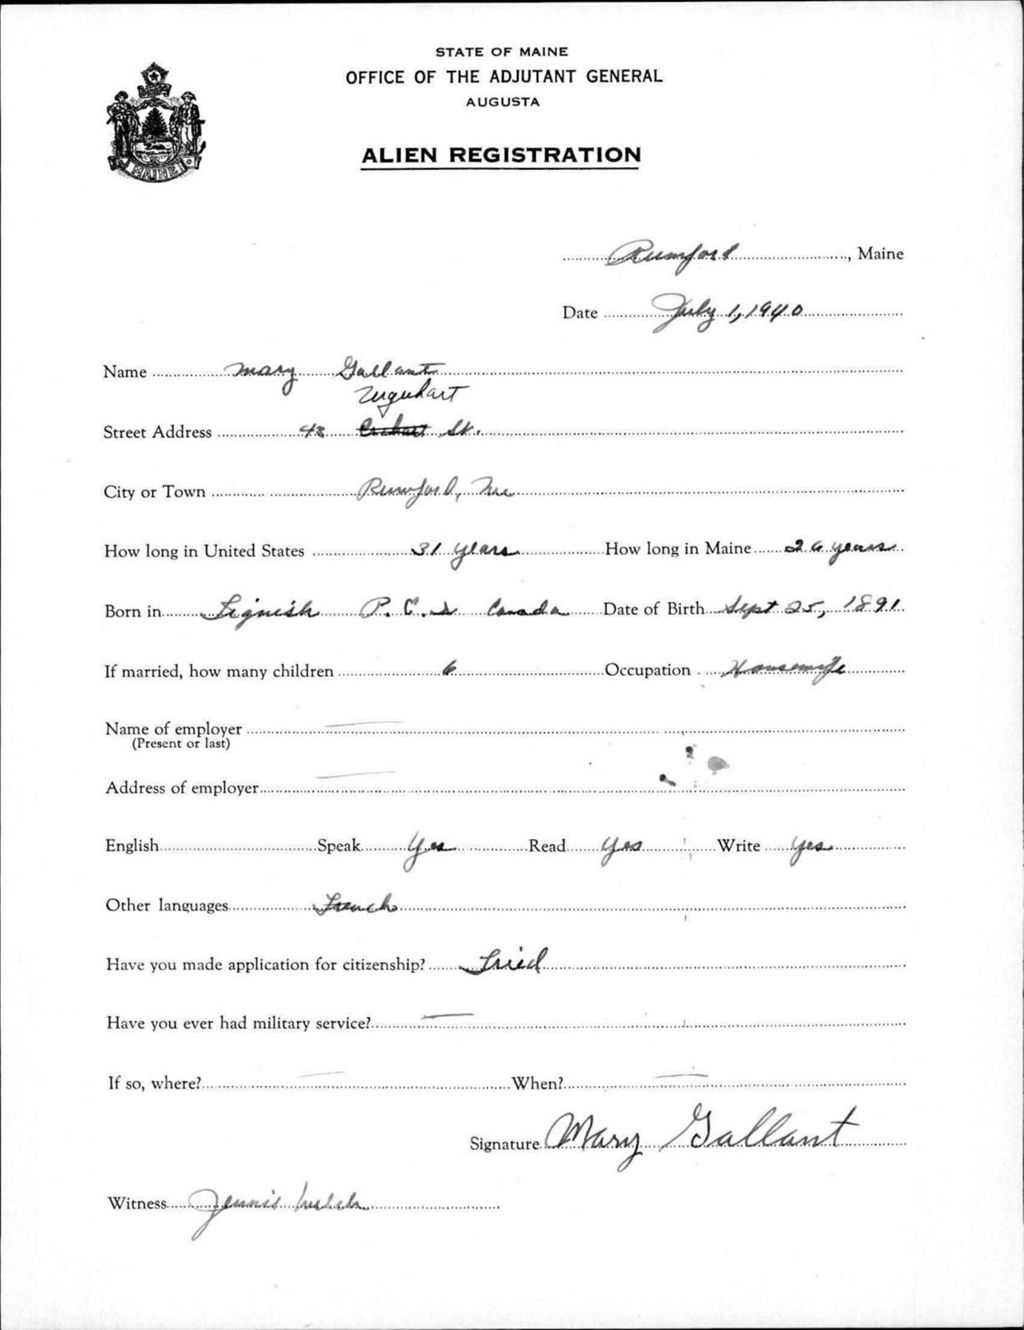 STATE OF MAINE
OFFICE OF THE ADJUTANT GENERAL
AUGUSTA
ALIEN REGISTRATION
MAINE
Rumford, Maine
Date July 1, 1940
Name Mary Gallant
Urquhart
Street Address 43 St.
City or Town Rumford, Me
How long in United States 31 years How long in Maine 26 years
Born in Tignish P. E. I Canada Date of Birth Sept 25, 1891
If married, how many children 6 Occupation Housewife
Name of employer
(Present or last)
Address of employer
English Speak Yes Read Yes Write Yes
Other languages French
Have you made application for citizenship? Tried
Have you ever had military service?
If so, where? When?
Signature Mary Gallant
Witness Welch